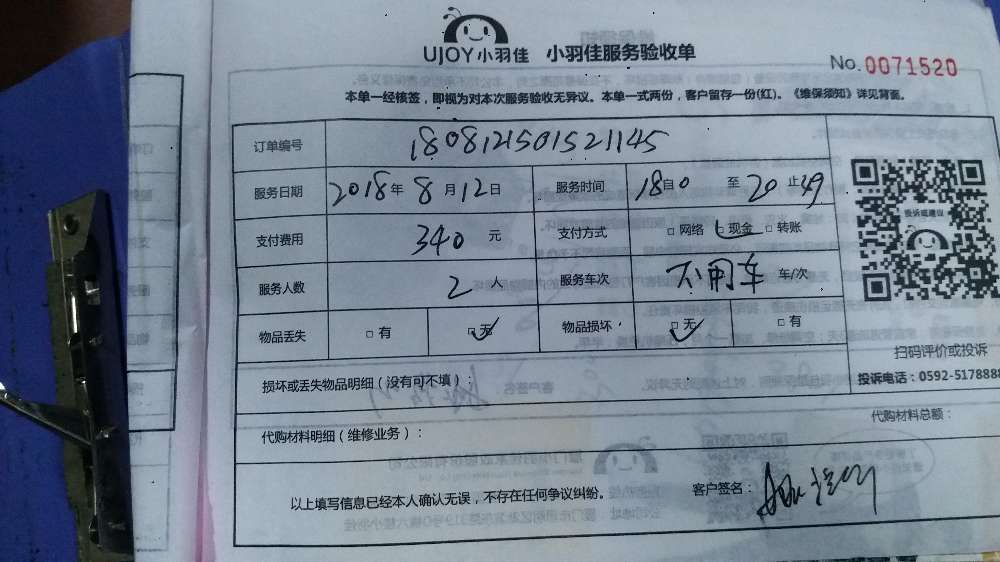 UJOY小羽佳 小羽佳服务验收单
No.0071520
本单一经核签，即视为对本次服务验收无异议。本单一式两份，客户留存一份(红)。《维保须知》详见背面。
订单编号 1808121501521145
服务日期 2018年8月12日 服务时间 18自0至20止49
支付费用 340元 支付方式 □网络 □现金 □转账
服务人数 2人 服务车次 不用车 车/次
物品丢失 □有 □无 物品损坏 □无 □有
投诉或建议
扫码评价或投诉
投诉电话：0592-5178888
损坏或丢失物品明细（没有可不填）：
代购材料明细（维修业务）： 代购材料总额：
以上填写信息已经本人确认无误，不存在任何争议纠纷。 客户签名：